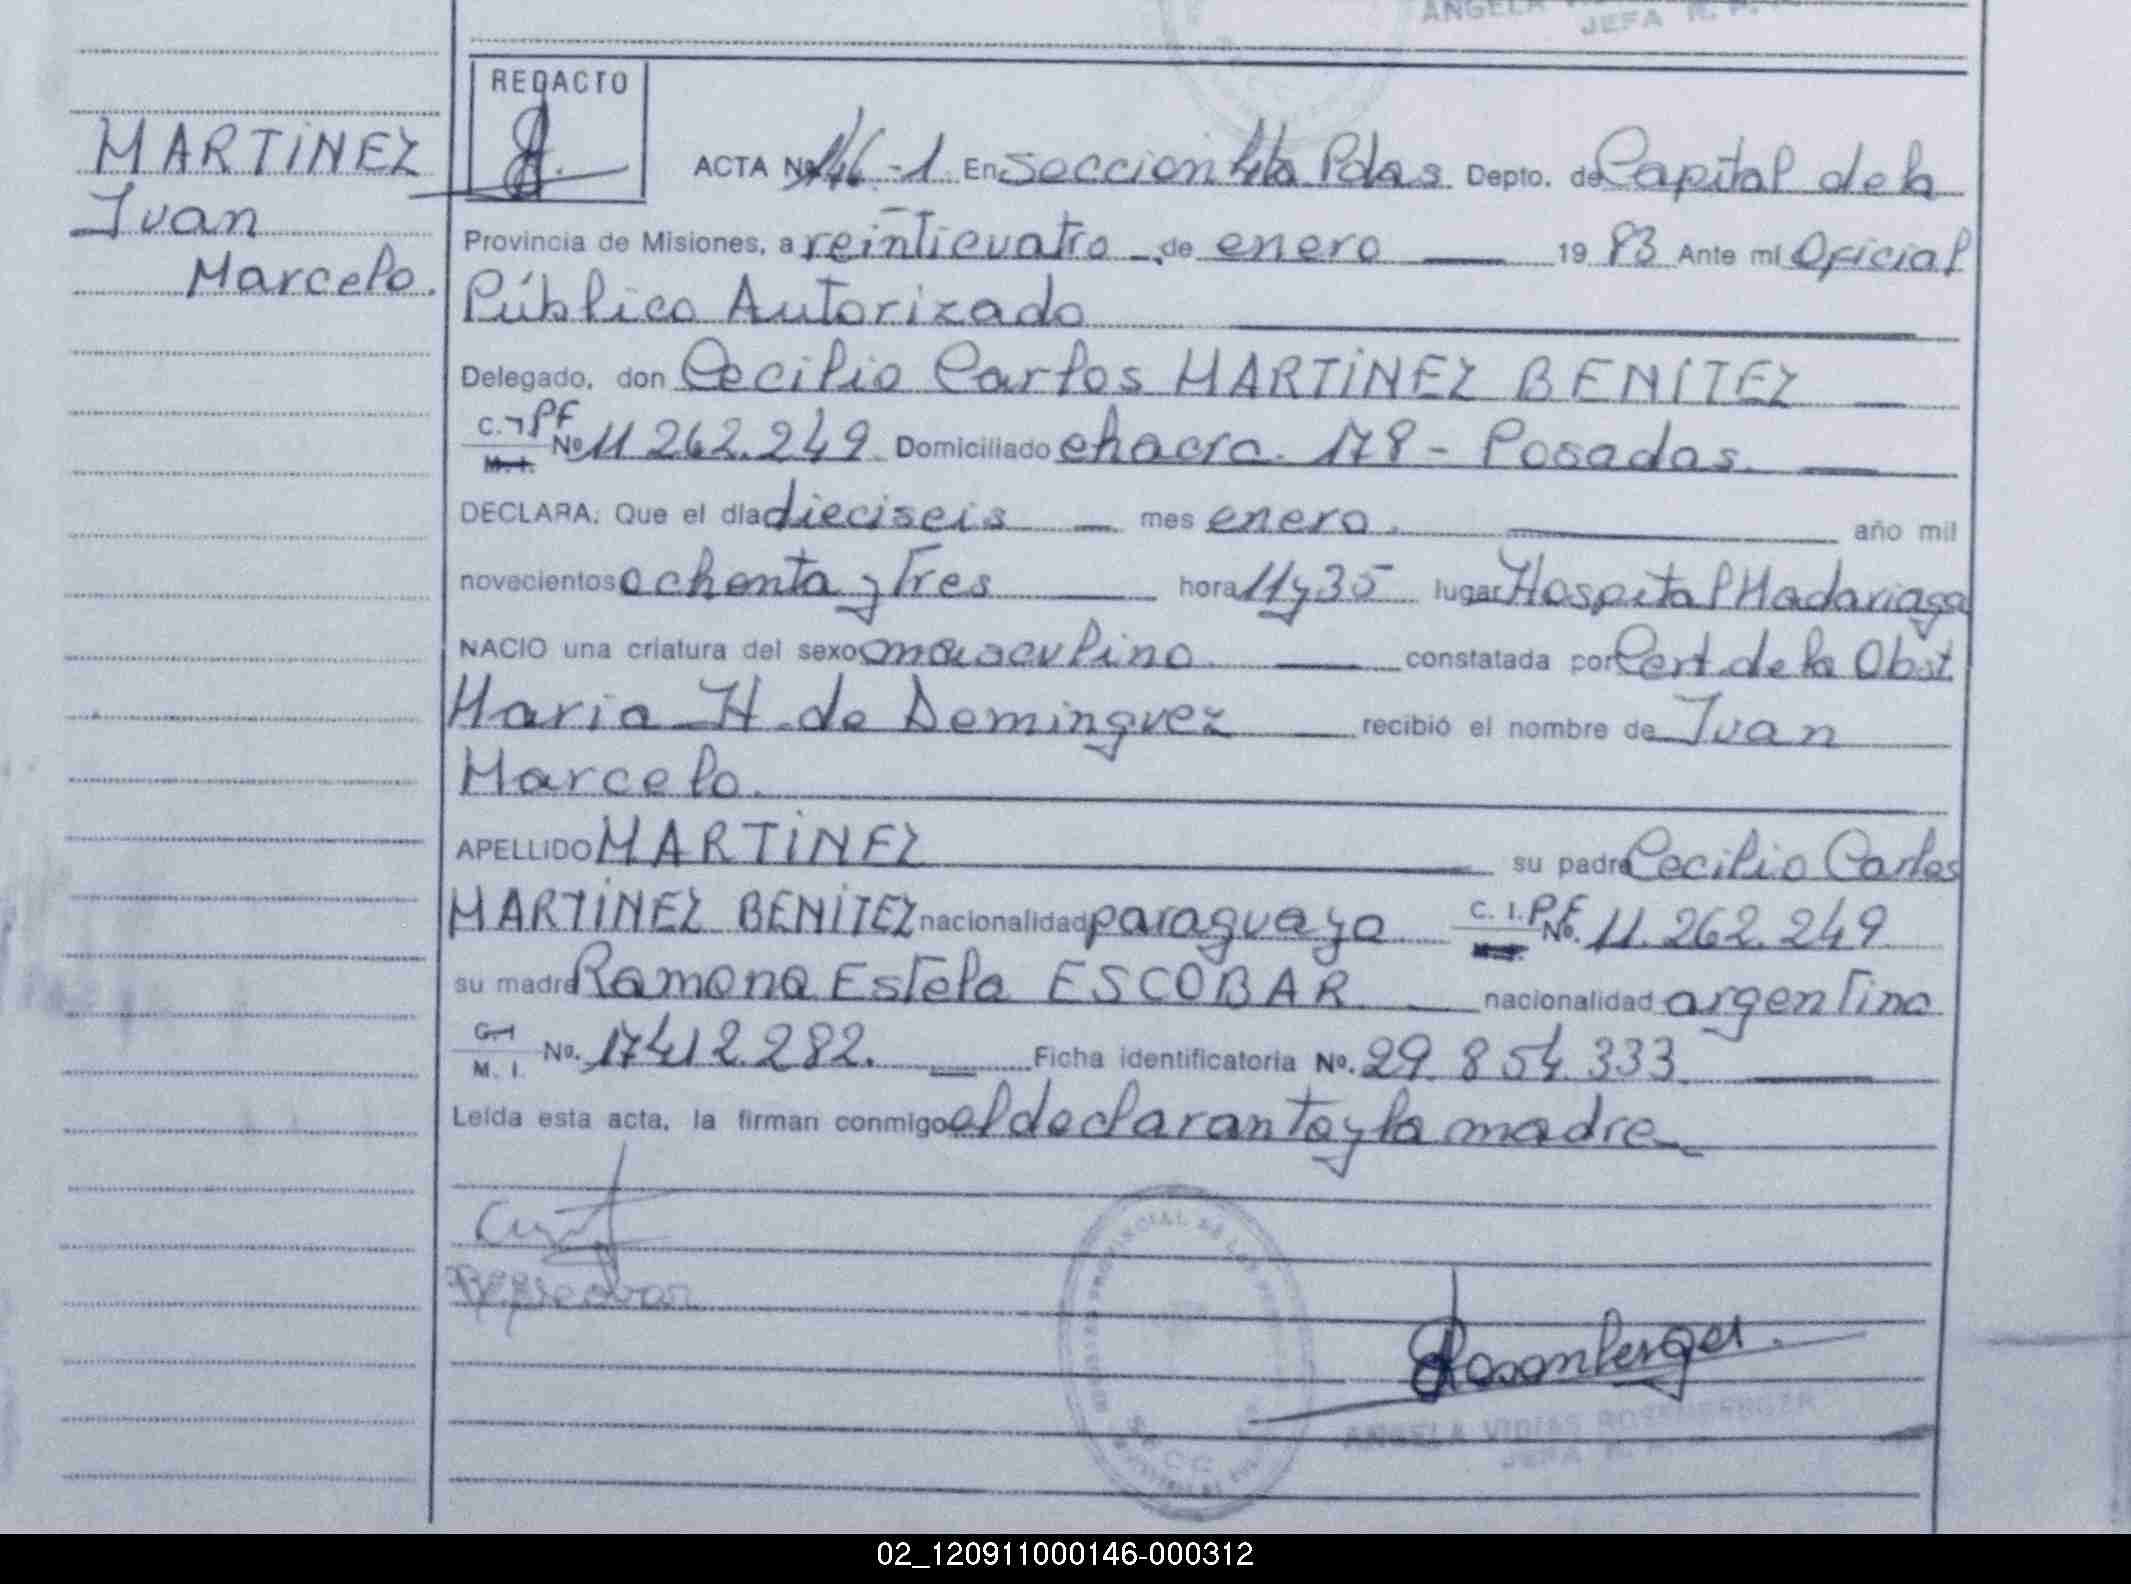 ANGELA
JEFA R. P.
REDACTO
MARTINEZ
Ivan
Marcelo.
ACTA No 146-1 En Seccion 4ta Pdas Depto. de Capital de la
Provincia de Misiones, a veinticuatro de enero 19 83 Ante mí Oficial
Público Autorizado
Delegado, don Cecilio Carlos MARTINEZ BENITEZ
C. I. PF
M. I. No 11 262.249 Domiciliado chacra 178 - Posadas.
DECLARA: Que el día dieciseis mes enero. año mil
novecientos ochenta y Tres hora 11y35 lugar Hospital Madariaga
NACIO una criatura del sexo masculino. constatada por Cert. de la Obst.
Maria H. de Dominguez recibió el nombre de Ivan
Marcelo.
APELLIDO MARTINEZ su padre Cecilio Carlos
MARTINEZ BENITEZ nacionalidad paraguaya C. I. P F No. 11.262.249
su madre Ramona Estela ESCOBAR nacionalidad argentina
C. I.
M. I. No. 17412.282. Ficha identificatoria No. 29.854.333
Leída esta acta, la firman conmigo el declarante y la madre
REEscobar
Rosenberger.
ANGELA VIDIAS ROSENBERGER
JEFA
02_120911000146-000312